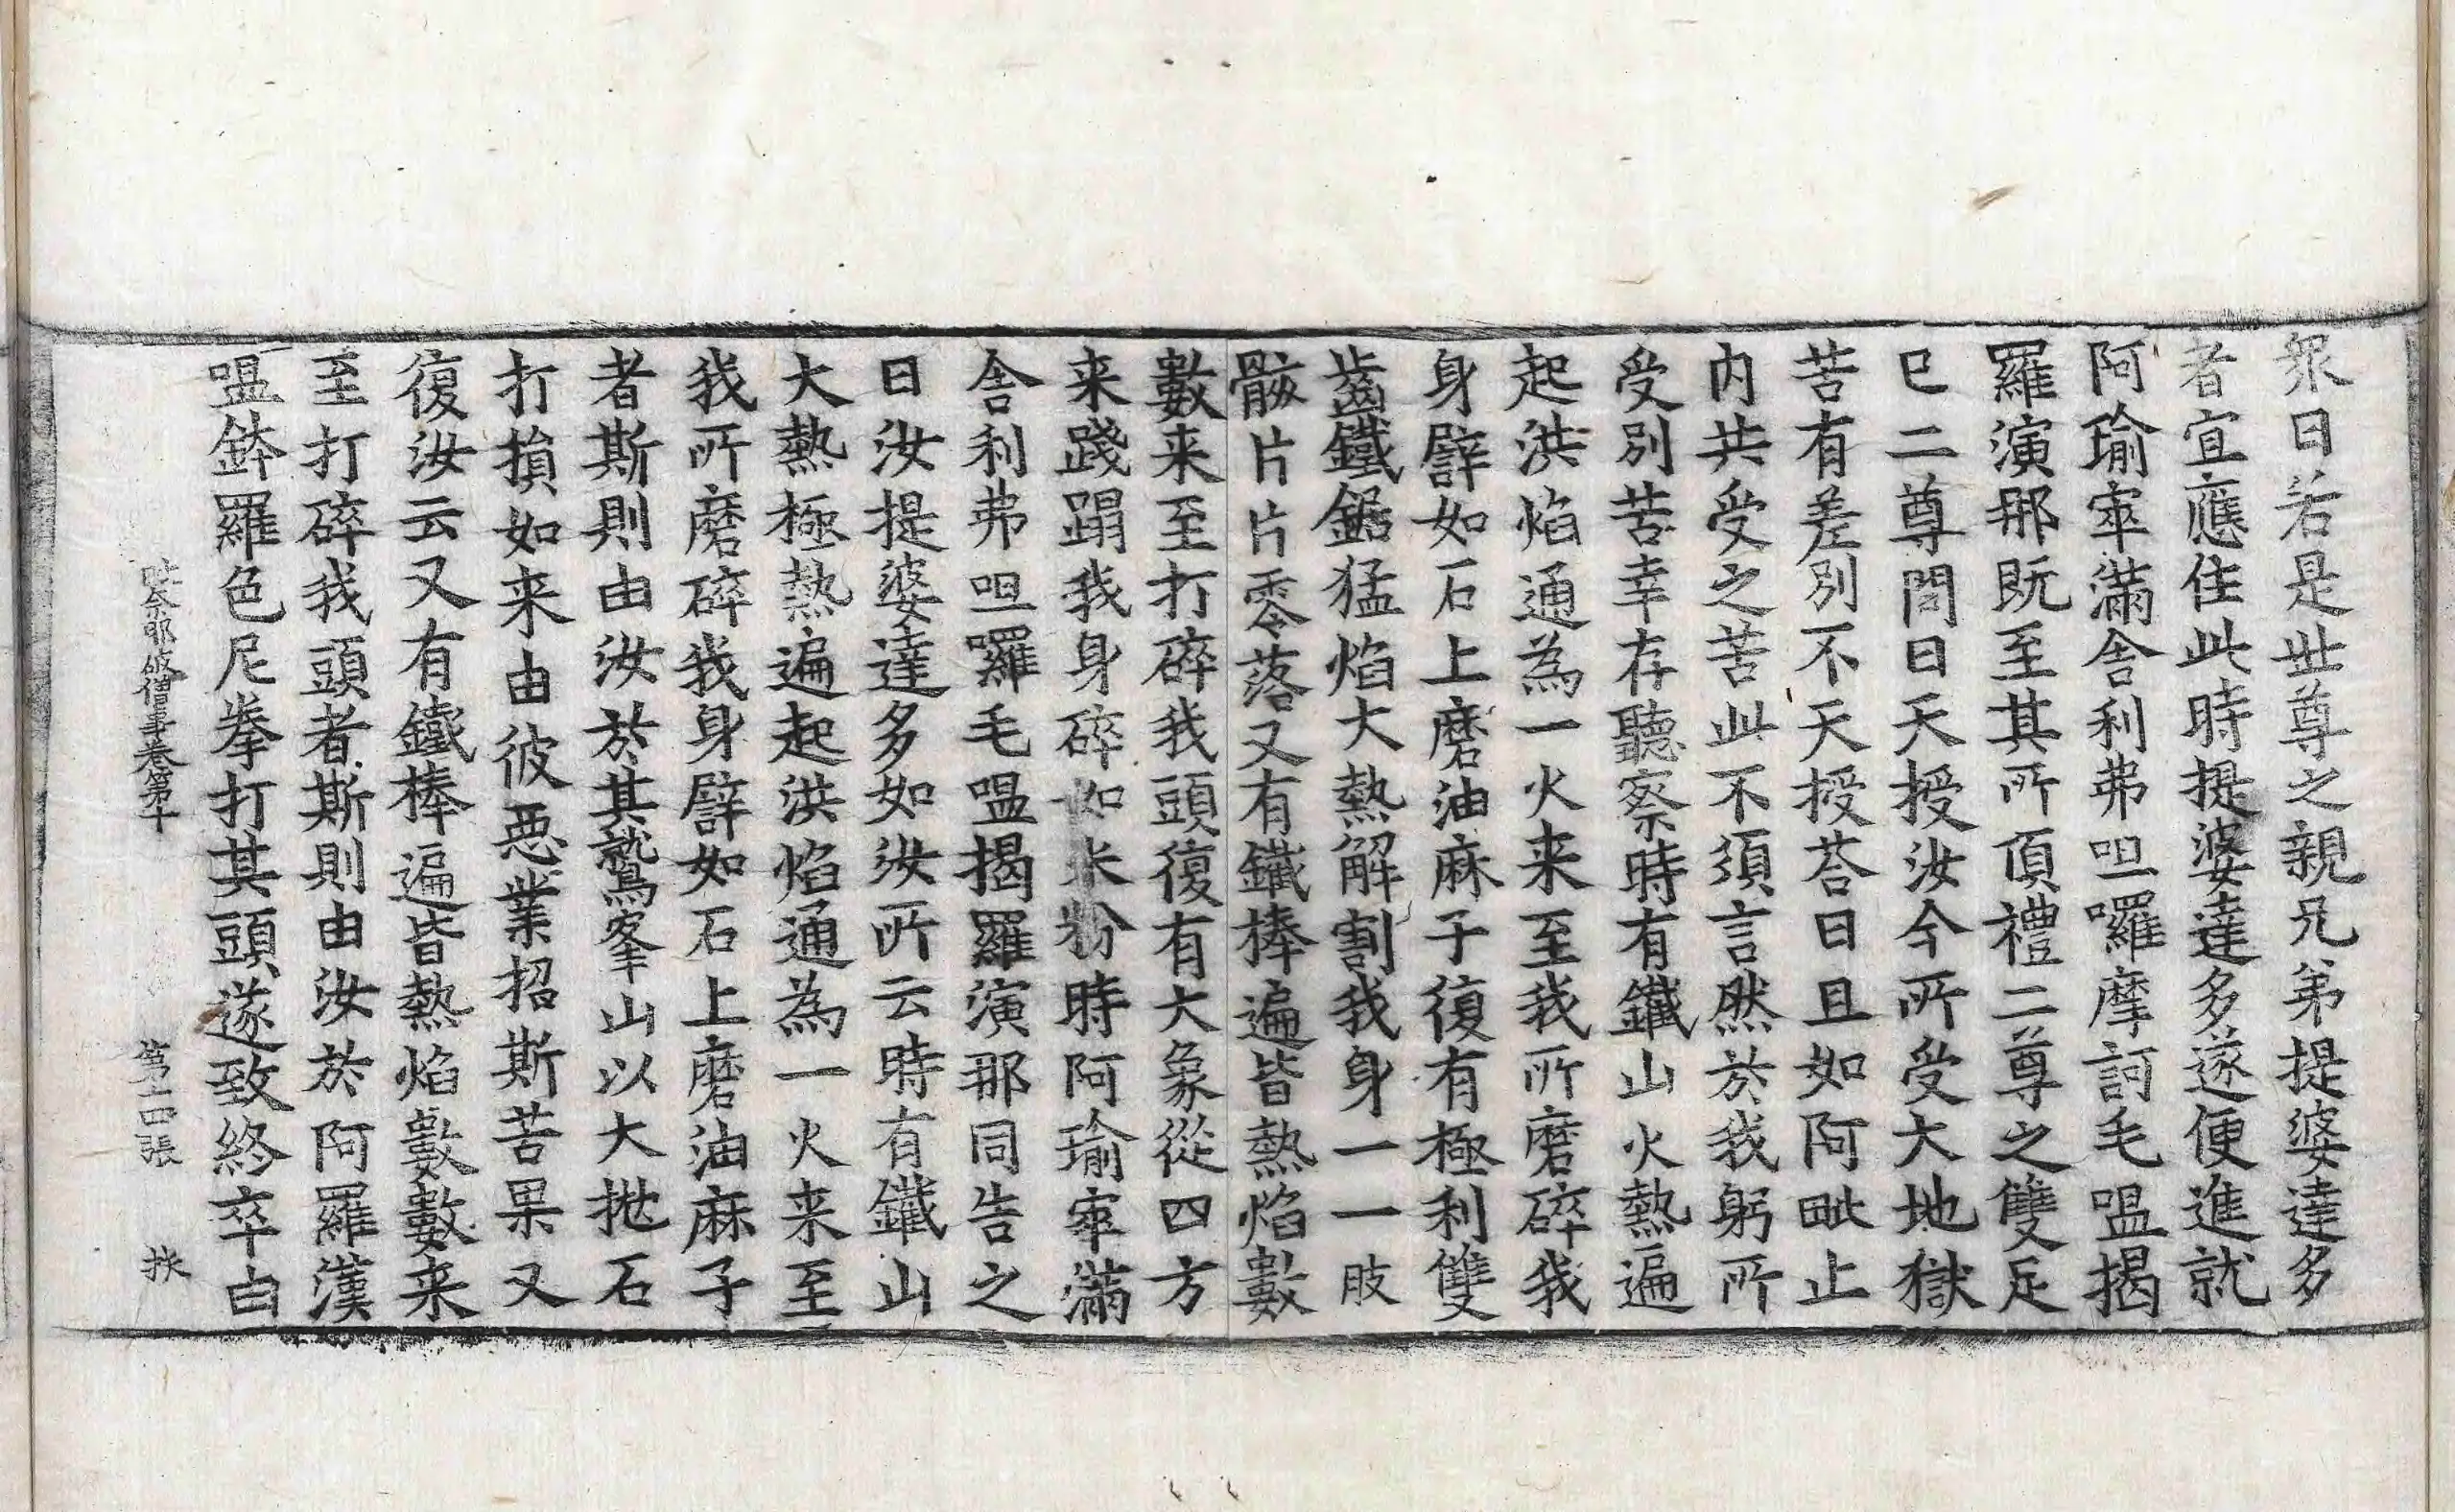 衆曰若是世尊之親兄弟提婆達多
者宜應住此時提婆達多遂便進就
阿瑜率滿舍利弗呾囉摩訶毛嗢揭
羅演那既至其所頂禮二尊之雙足
已二尊問曰天授汝今所受大地獄
苦有差別不天授荅曰且如阿毗止
内共受之苦此不須言然於我躬所
受別苦幸存聽察時有鐵山火熱遍
起洪焰通為一火来至我所磨碎我
身譬如石上磨油麻子復有極利雙
齒鐵鋸猛焰大熱解割我身一一肢
骸片片零落又有鐵棒遍皆熱焰數
數来至打碎我頭復有大象從四方
来踐蹋我身碎如米粉時阿瑜率滿
舍利弗呾囉毛嗢揭羅演那同告之
曰汝提婆達多如汝所云時有鐵山
大熱極熱遍起洪焰通為一火来至
我所磨碎我身譬如石上磨油麻子
者斯則由汝於其鷲峯山以大拋石
打損如来由彼惡業招斯苦果又
復汝云又有鐵棒遍皆熱焰數數来
至打碎我頭者斯則由汝於阿羅漢
嗢鉢羅色尼拳打其頭遂致終卒由
毗奈耶破僧事卷第十 第十四張